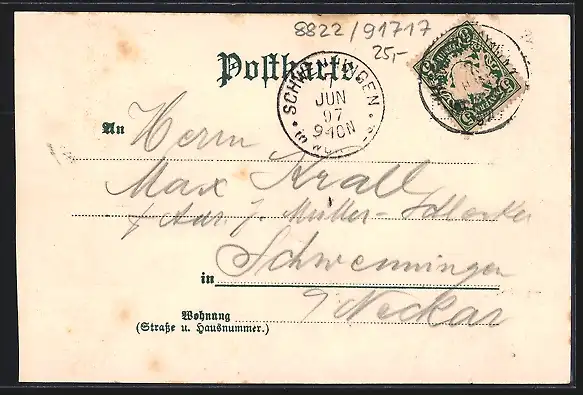 8822/91717
25,-
Postkarte
SCHWENNINGEN
JUN
97
9-10N
An
Herrn
Max Krall
in Schwenningen
a/Neckar
Wohnung
(Straße u. Hausnummer.)